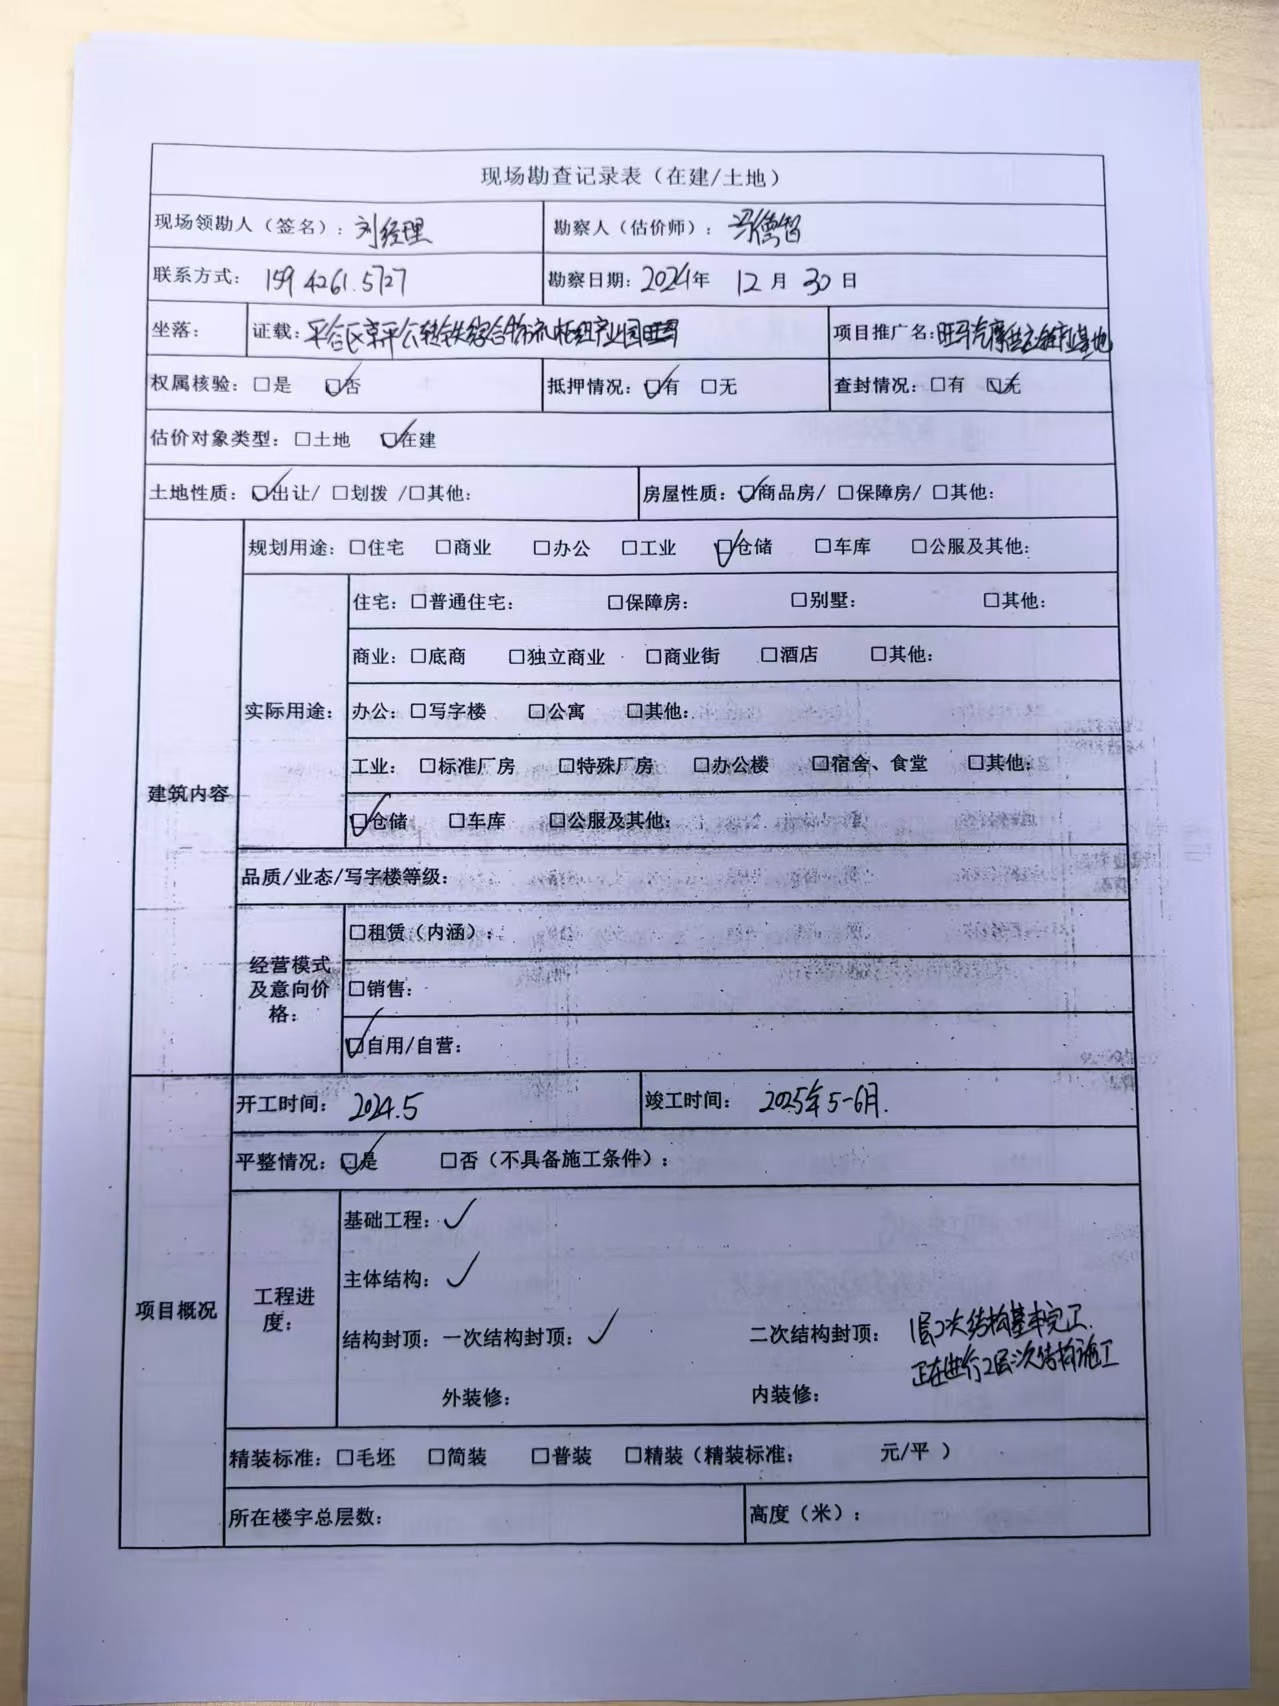 现场勘查记录表（在建/土地）
现场领勘人（签名）：刘经理 勘察人（估价师）：冯德智
联系方式：159 4261.5727 勘察日期：2024年 12月 30日
坐落： 证载：平谷区京平公转铁综合物流枢纽产业园 项目推广名：旺马汽摩供应链产业基地
权属核验：□是 ☑否 抵押情况：☑有 □无 查封情况：□有 ☑无
估价对象类型：□土地 ☑在建
土地性质：☑出让/ □划拨 /□其他： 房屋性质：☑商品房/ □保障房/ □其他：
规划用途：□住宅 □商业 □办公 □工业 ☑仓储 □车库 □公服及其他：
住宅：□普通住宅： □保障房： □别墅： □其他：
商业：□底商 □独立商业 □商业街 □酒店 □其他：
实际用途： 办公：□写字楼 □公寓 □其他：
工业：□标准厂房 □特殊厂房 □办公楼 □宿舍、食堂 □其他：
建筑内容
☑仓储 □车库 □公服及其他：
品质/业态/写字楼等级：
经营模式及意向价格：
□租赁（内涵）：
□销售：
☑自用/自营：
开工时间：2024.5 竣工时间：2025年5-6月.
平整情况：☑是 □否（不具备施工条件）：
项目概况
工程进度：
基础工程：✓
主体结构：✓
结构封顶：一次结构封顶：✓ 二次结构封顶：1层2次结构基本完工.
正在进行2层二次结构施工
外装修： 内装修：
精装标准：□毛坯 □简装 □普装 □精装（精装标准： 元/平 ）
所在楼宇总层数： 高度（米）：